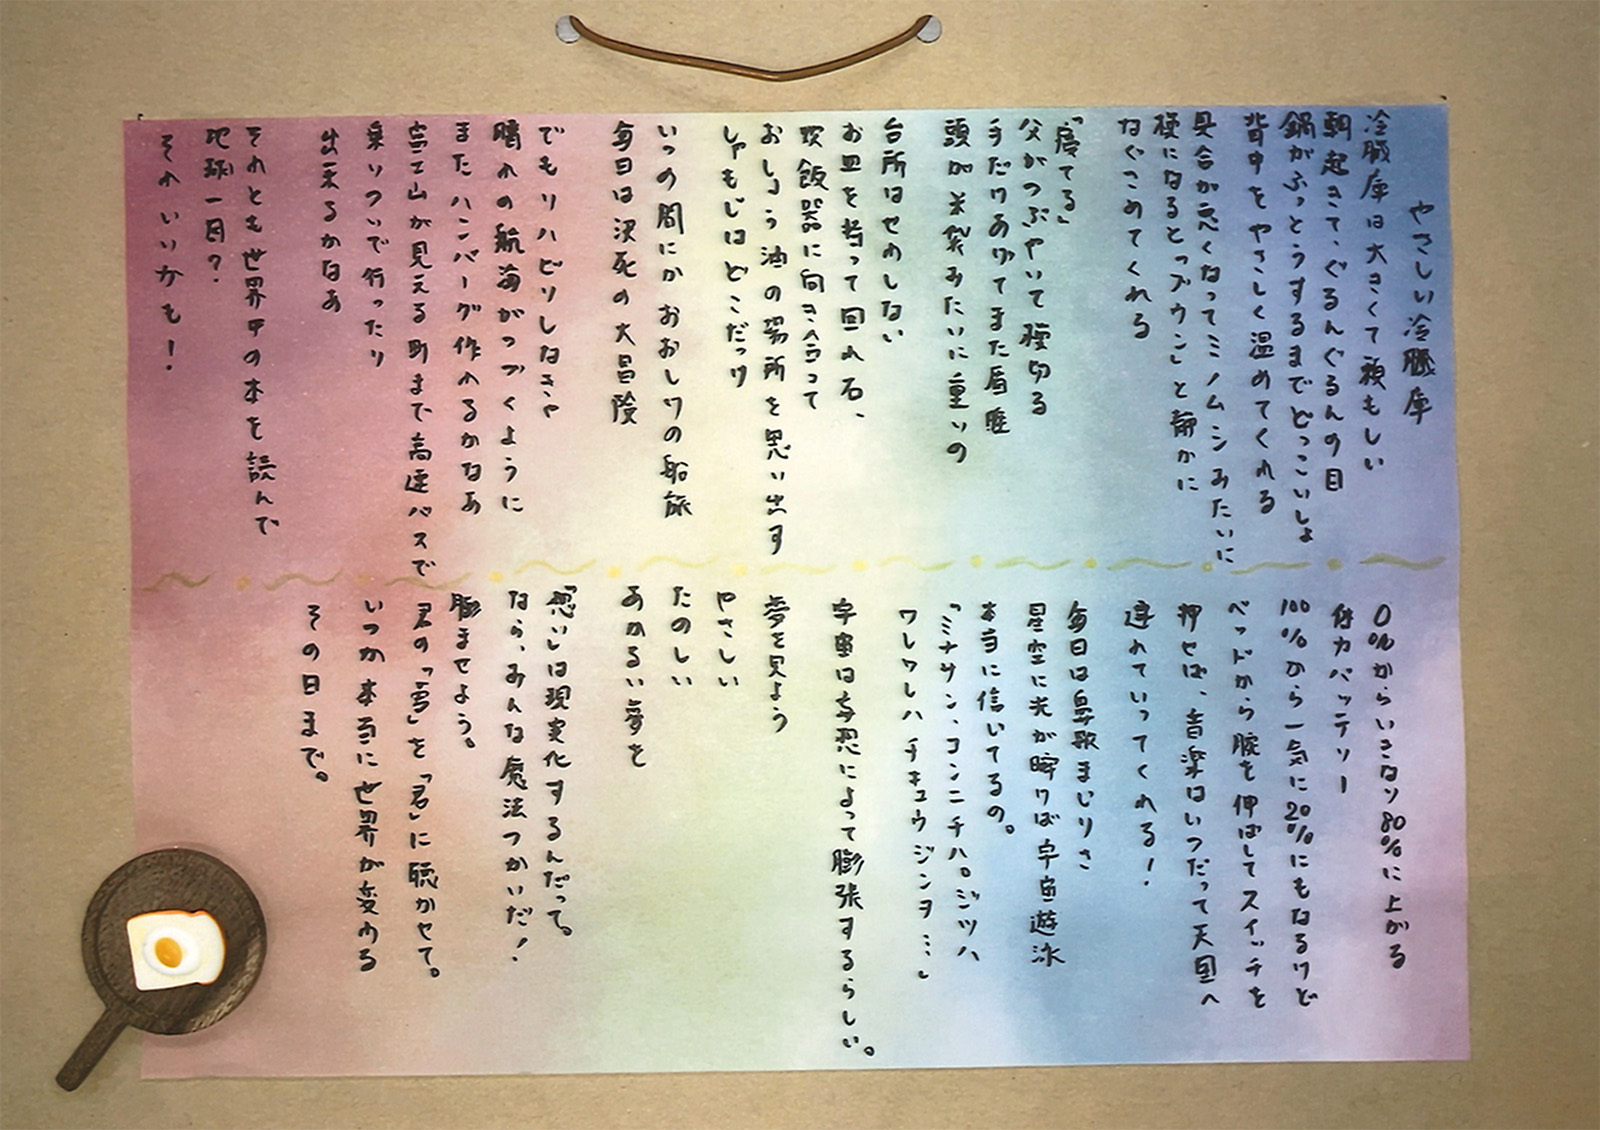 やさしい冷蔵庫
冷蔵庫は大きくて頼もしい
朝起きて、ぐるんぐるんの目
鍋がふっとうするまでどっこいしょ
背中をやさしく温めてくれる
具合が悪くなってミノムシみたいに
横になるとっブウンっと静かに
なぐさめてくれる
「寝てる」
父がつぶやいて横切る
手だけあげてまた居眠
頭が米袋みたいに重いの
台所はせわしない
お皿を持って回れ右、
炊飯器に向き合って
おしょう油の場所を思い出す
しゃもじはどこだっけ
いつの間にかおおしけの船旅
毎日は決死の大冒険
でもリハビリしなきゃ
晴れの航海がつづくように
またハンバーグ作れるかなあ
富士山が見える町まで高速バスで
乗りついで行ったり
出来るかなあ
それとも世界中の本を読んで
地球一周？
それいいかも！
0%からいきなり80%に上がる
体力バッテリー
100%から一気に20%にもなるけど
ベッドから腕を伸ばしてスイッチを
押せば、音楽はいつだって天国へ
連れていってくれる！
毎日は鼻歌まじりさ
星空に光が瞬けば宇宙遊泳
本当に信いてるの。
「ミナサン、コンニチハ。ジツハ
ワレワレハチキュウジンヲ…」
宇宙は妄想によって膨張するらしい。
夢を見よう
やさしい
たのしい
あかるい夢を
「想い」は現実化するんだって。
なら、みんな魔法つかいだ！
膨ませよう。
君の「夢」を「君」に聴かせて。
いつか本当に世界が変わる
その日まで。